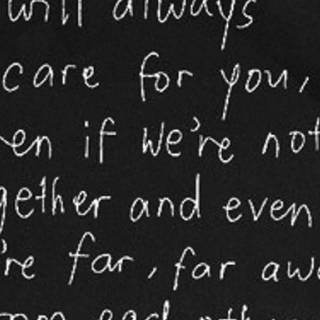 will always
care for you,
en if we're not
gether and even
're far, far aw
om each other